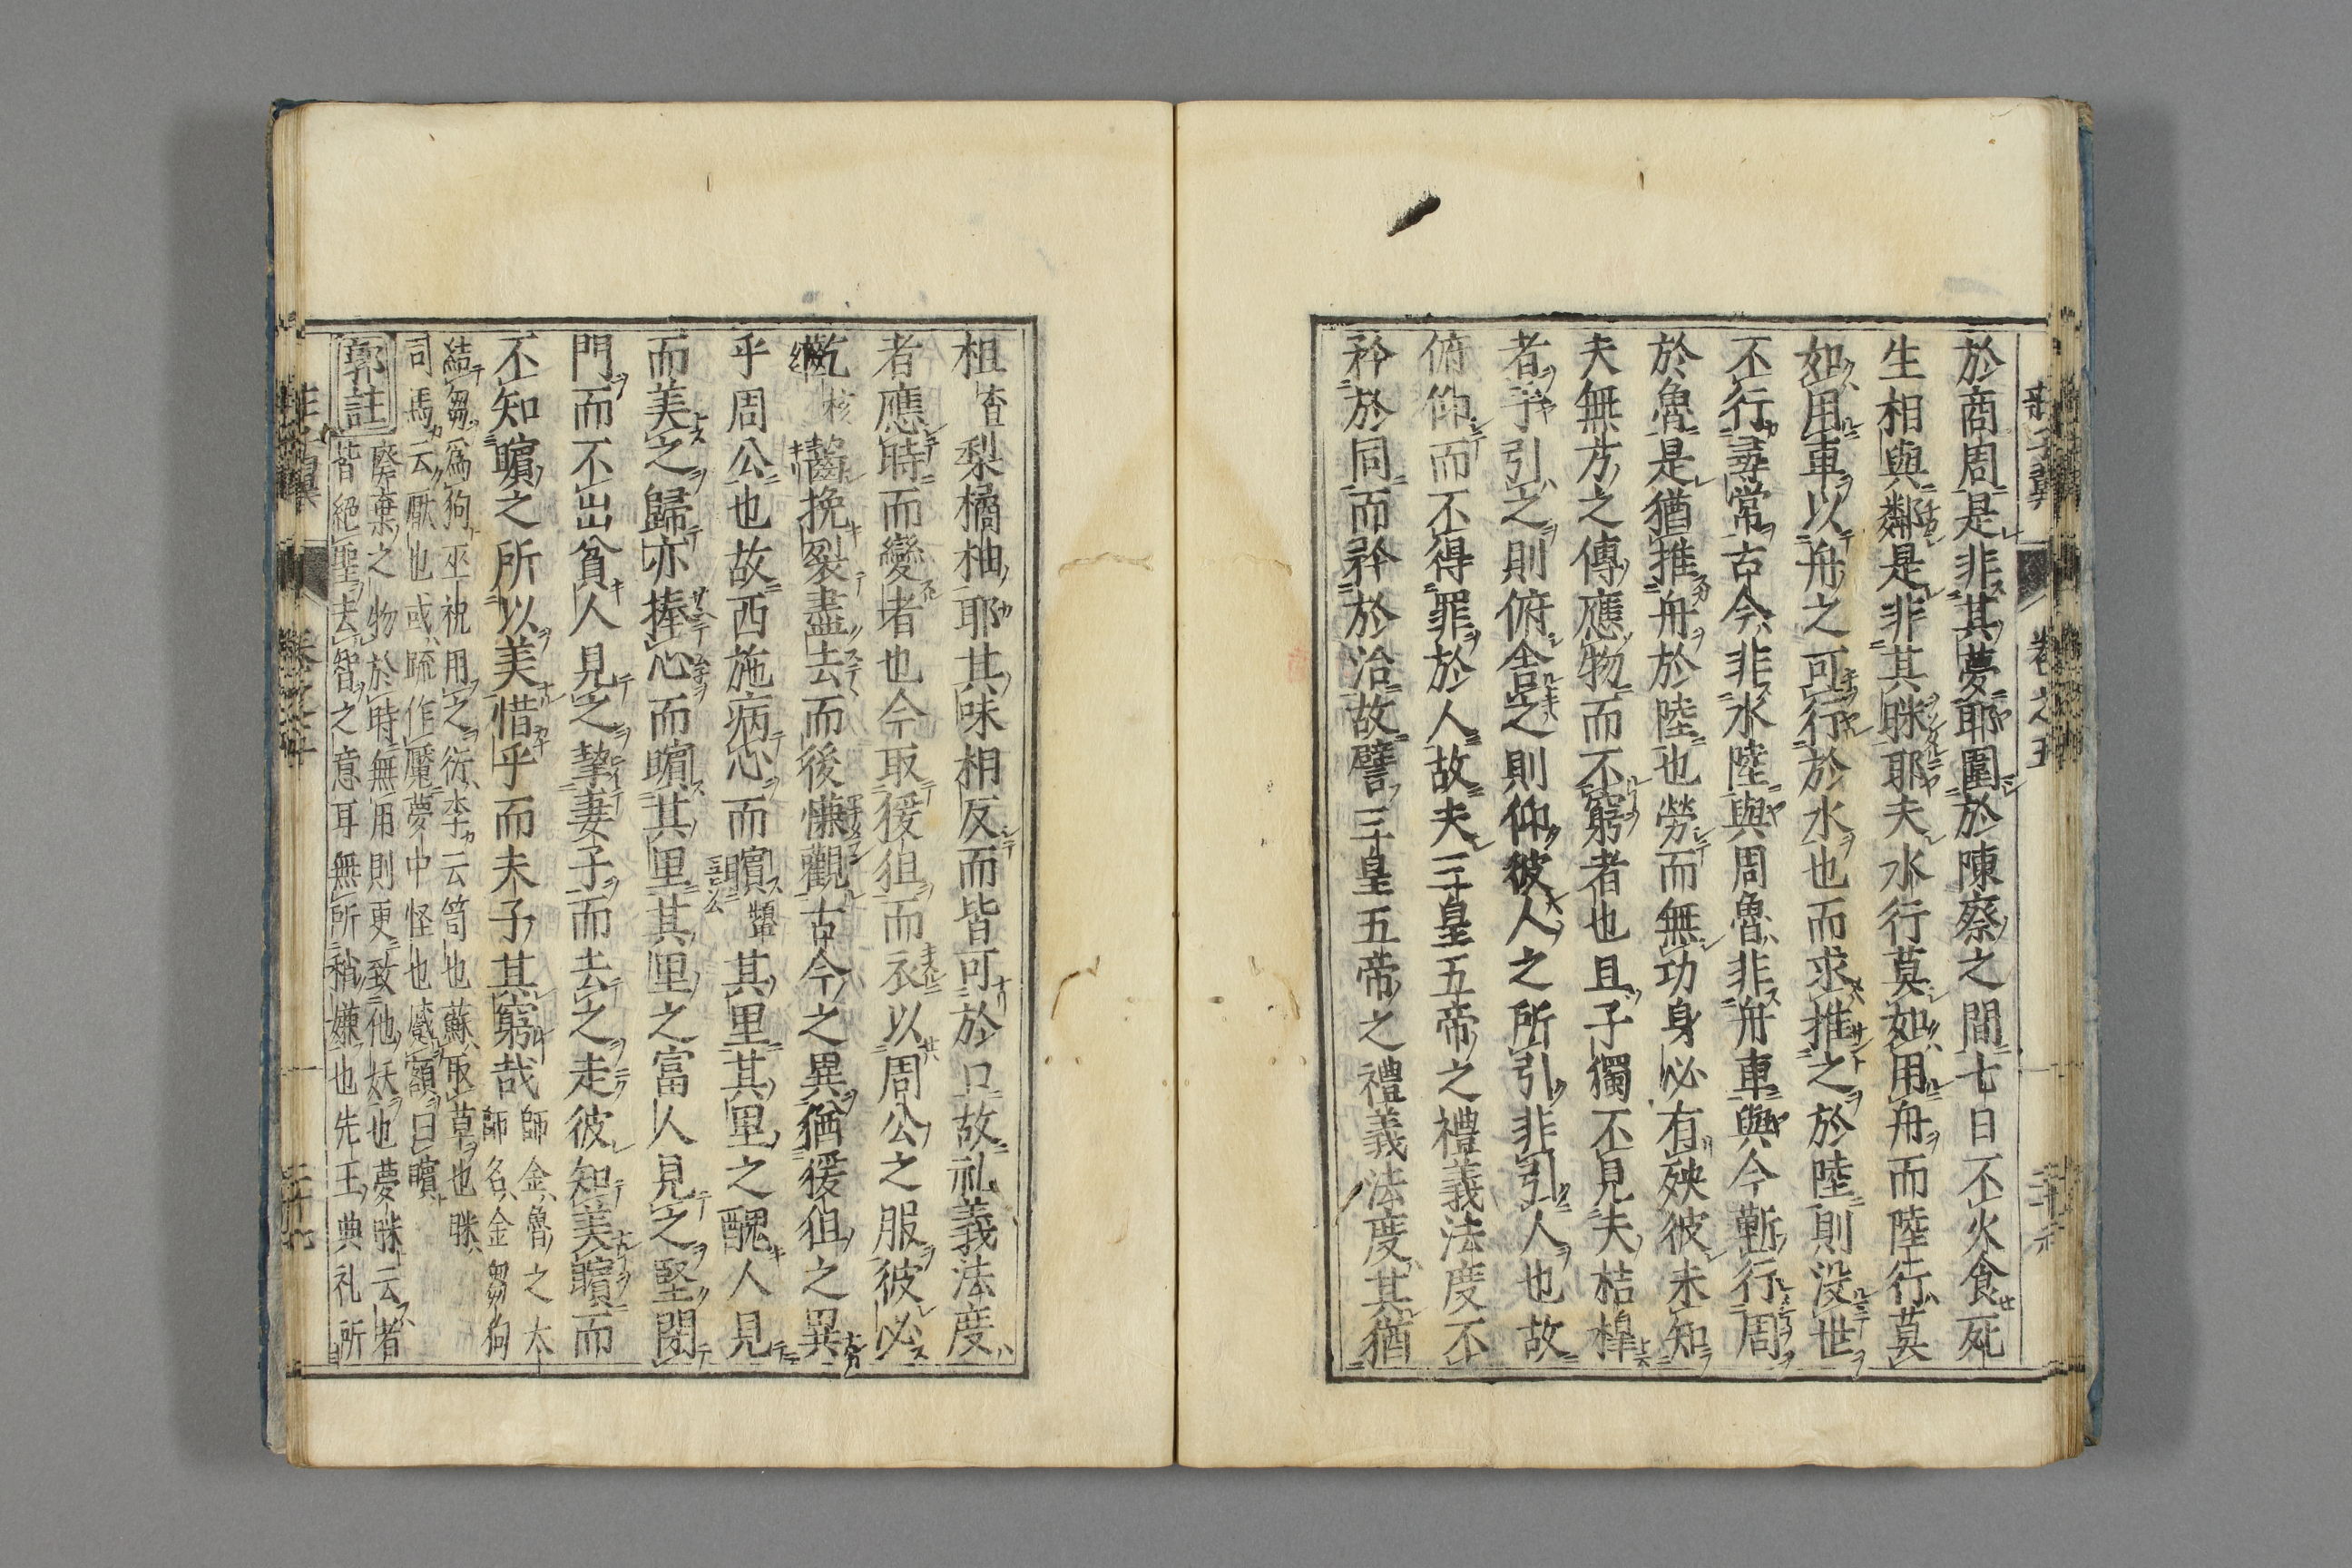 莊子翼 卷之五
於商周是非其夢耶圍於陳蔡之間七日不火食死
生相與鄰是非其眯耶夫水行莫如用舟而陸行莫
如用車以舟之可行於水也而求推之於陸則没世
不行尋常古今非水陸與周魯非舟車與今蘄行周
於魯是猶推舟於陸也勞而無功身必有殃彼未知
夫無方之傳應物而不窮者也且子獨不見夫桔槹
者乎引之則俯舎之則仰彼人之所引非引人也故
俯仰而不得罪於人故夫三皇五帝之禮義法度不
矜於同而矜於治故譬三皇五帝之禮義法度其猶
柤查梨橘柚耶其味相反而皆可於口故礼義法度
者應時而變者也今取猨狙而衣以周公之服彼必
齕核齧挽裂盡去而後慊觀古今之異猶猨狙之異
乎周公也故西施病心而矉顰其里其里之醜人見
而美之歸亦捧心而矉其里其里之富人見之堅閉
門而不出貧人見之挈妻子而去之走彼知美矉而
不知矉之所以美惜乎而夫子其窮哉師金魯之太師名金芻狗
結芻爲狗巫祝用之衍李云笥也蘇取草也眯
司馬云厭也或䟽作魘夢中怪也蹙額曰矉
郭註廢棄之物於時無用則更致他妖也夢眯云者
皆絶聖去智之意耳無所稍嫌也先王典礼所